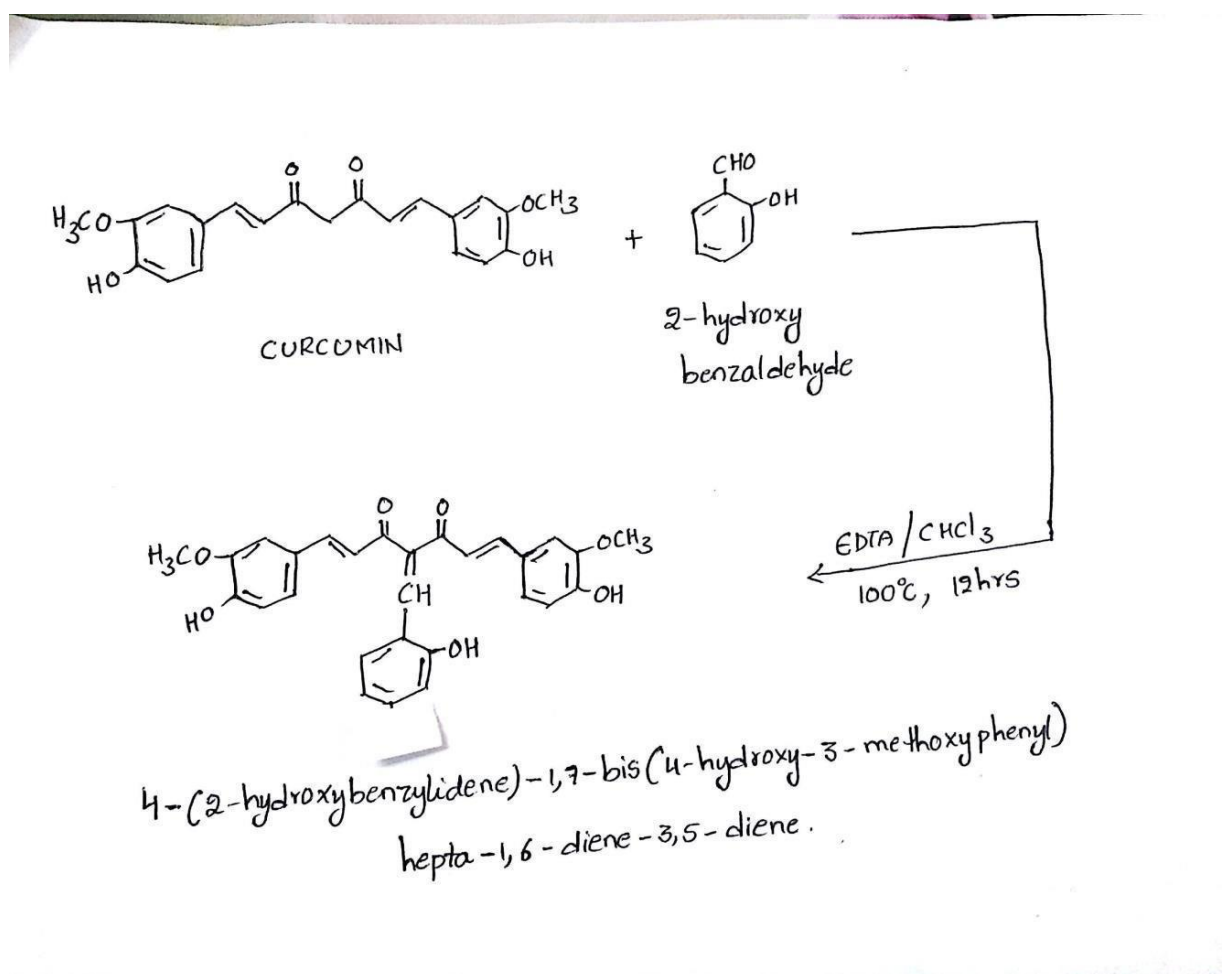 O O
H3CO
OCH3
HO
OH
CURCUMIN
+
CHO
OH
2-hydroxy
benzaldehyde
EDTA/CHCl3
100°C, 12hrs
O O
H3CO
OCH3
HO
OH
CH
OH
4-(2-hydroxybenzylidene)-1,7-bis(4-hydroxy-3-methoxyphenyl)
hepta-1,6-diene-3,5-diene.